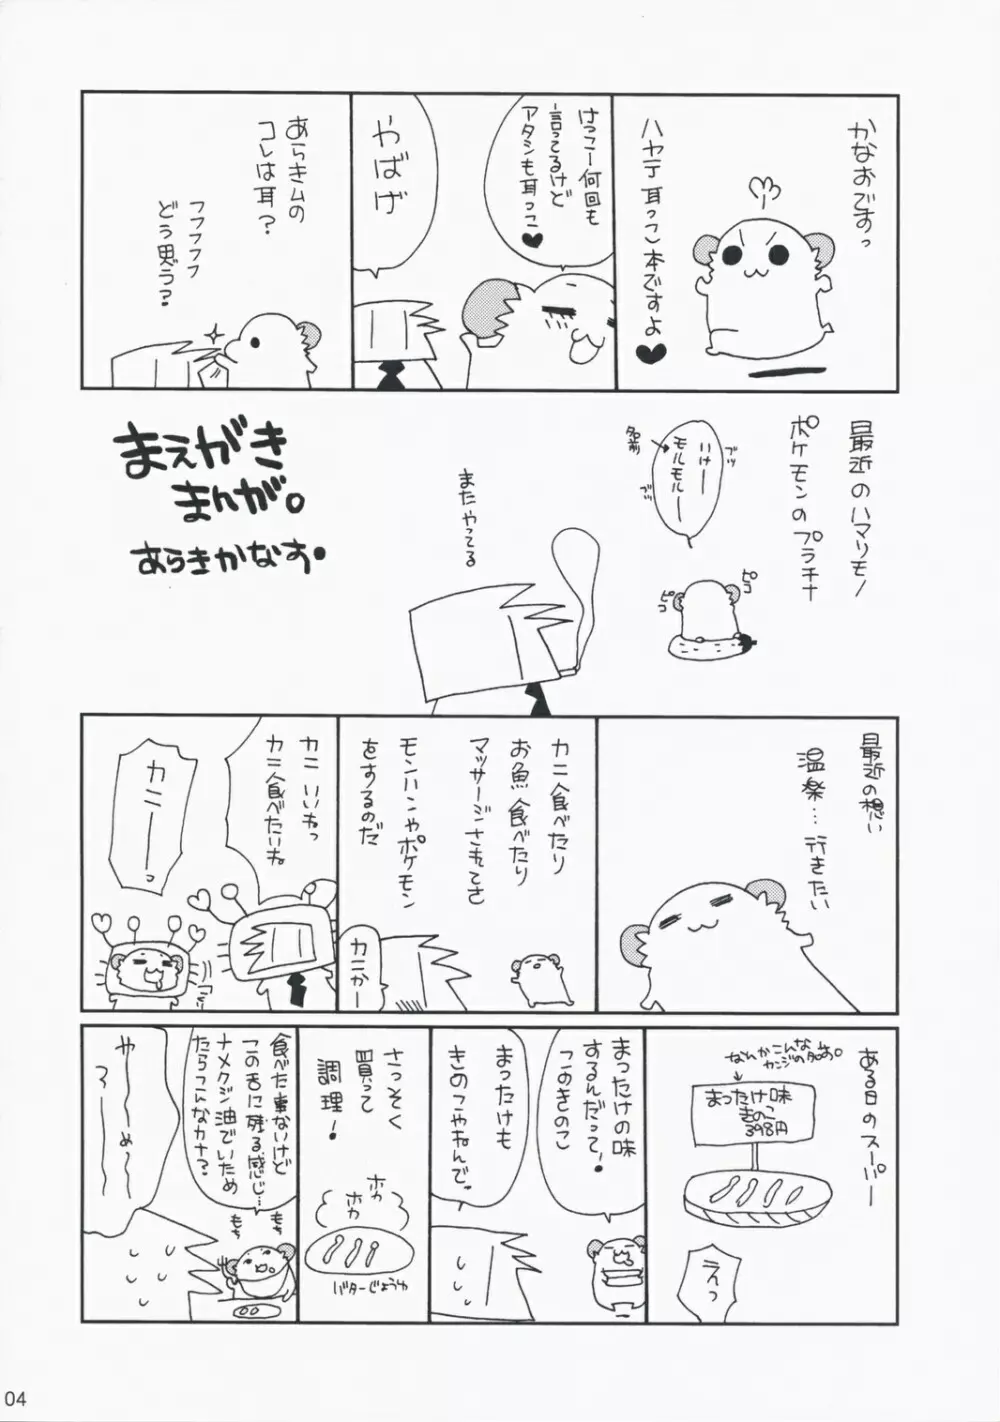 かなおですっ
ハヤテ耳っこ本ですよ♥
けっこー何回も
言ってるけど
アタシも耳っこ♥
やばげ
あらきムの
コレは耳?
フフフフフ
どう思う?
最近のハマリモノ
ポケモンのプラチナ
ブッ
いけー
モルモルー
名前
ブッ
ピコ
ピコ
またやってる
まえがき
まんが。
あらきかなお・
最近の想い
温楽…行きたい
カニ食べたり
お魚食べたり
マッサージされてさ
モンハンやポケモン
をするのだ
カニかー
カニいいねっ
カニ食べたいね。
カニーーっ
ある日のスーパー
なんかこんな
カンジの名前。
まったけ味
きのこ
398円
えっ
まったけの味
するんだって!
このきのこ
まったけも
きのこやねんで。
さっそく
買って
調理!
ホカ
ホカ
バターじょうゆ
食べた事ないけど
この舌に残る感じ…
ナメクジ油でいため
たらこんなカナ?
もち
もち
や〜〜めっ〜〜